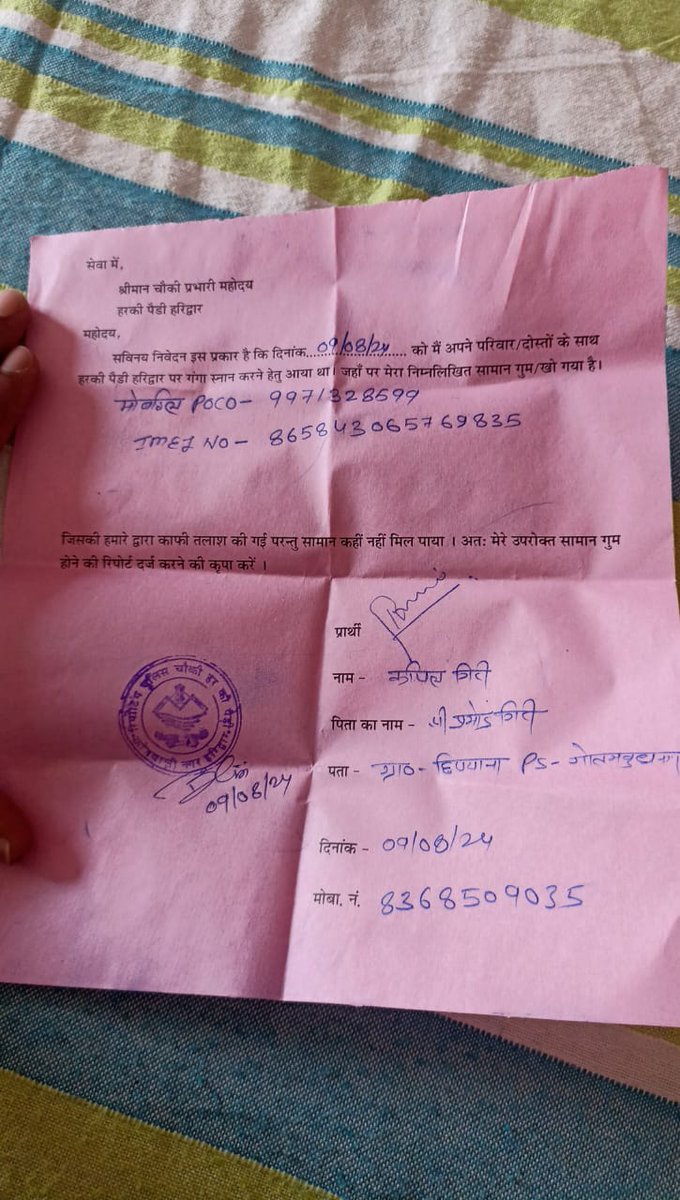 सेवा में,
श्रीमान चौकी प्रभारी महोदय
हरकी पैडी हरिद्वार
महोदय,
सविनय निवेदन इस प्रकार है कि दिनांक...09/08/24... को मैं अपने परिवार/दोस्तों के साथ
हरकी पैडी हरिद्वार पर गंगा स्नान करने हेतु आया था। जहाँ पर मेरा निम्नलिखित सामान गुम/खो गया है।
POCO - 9971328599
IMEI NO - 865843065769835
जिसकी हमारे द्वारा काफी तलाश की गई परन्तु सामान कहीं नहीं मिल पाया । अतः मेरे उपरोक्त सामान गुम
होने की रिपोर्ट दर्ज करने की कृपा करें ।
प्रार्थी
नाम - कपिल गिरी
पिता का नाम - श्री प्रमोद गिरी
पता - PS -
दिनांक - 09/08/24
मोबा. नं. 8368509035
पुलिस चौकी हर की पैडी
नगर हरिद्वार
09/08/24